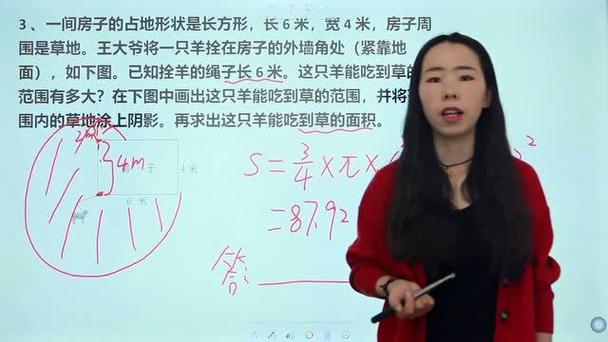 3、一间房子的占地形状是长方形，长6米，宽4米，房子周
围是草地。王大爷将一只羊拴在房子的外墙角处（紧靠地
面），如下图。已知拴羊的绳子长6米。这只羊能吃到草的
范围有多大？在下图中画出这只羊能吃到草的范围，并将
围内的草地涂上阴影。再求出这只羊能吃到草的面积。
2m
4m
子
4米
6 米
S=3/4×π×(
2
=87.92
答: